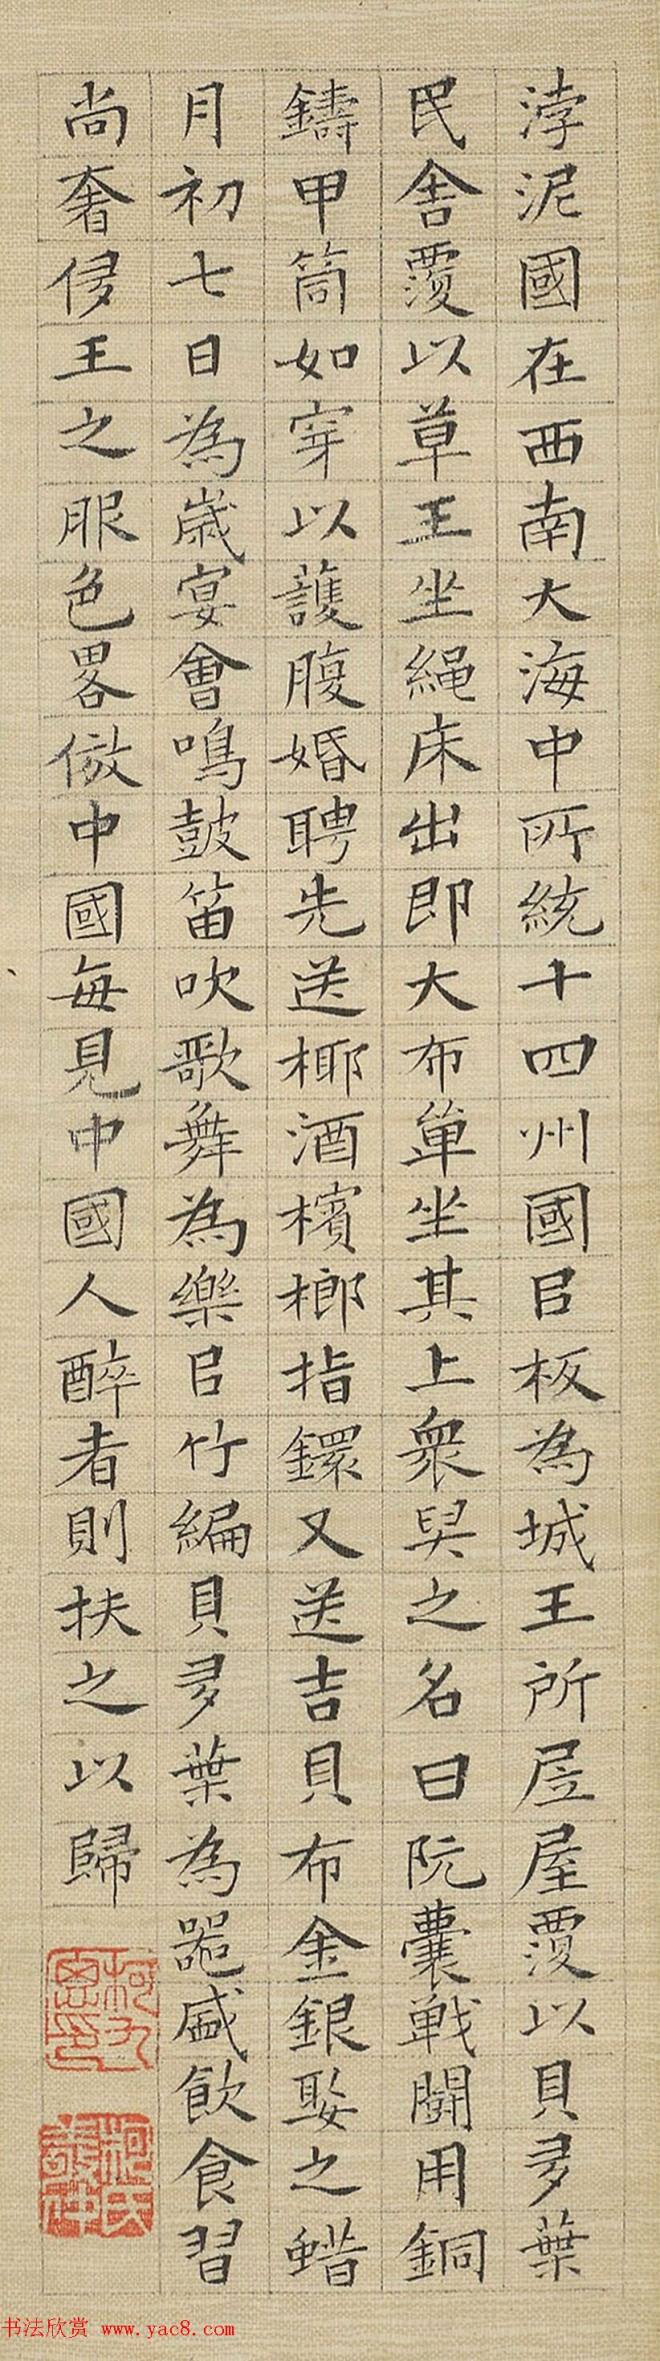 浡泥國在西南大海中所統十四州國㠯板為城王所居屋覆以貝多葉
民舍覆以草王坐繩床出即大布單坐其上衆舁之名曰阮囊戦鬪用銅
鑄甲筒如穿以護腹婚聘先送椰酒檳榔指鐶又送吉貝布金銀娶之蜡
月初七日為歲宴會鳴鼓笛吹歌舞為樂㠯竹編貝多葉為器盛飲食習
尚奢侈王之服色畧倣中國每見中國人醉者則扶之以歸
柯九思印
书法欣赏 www.yac8.com